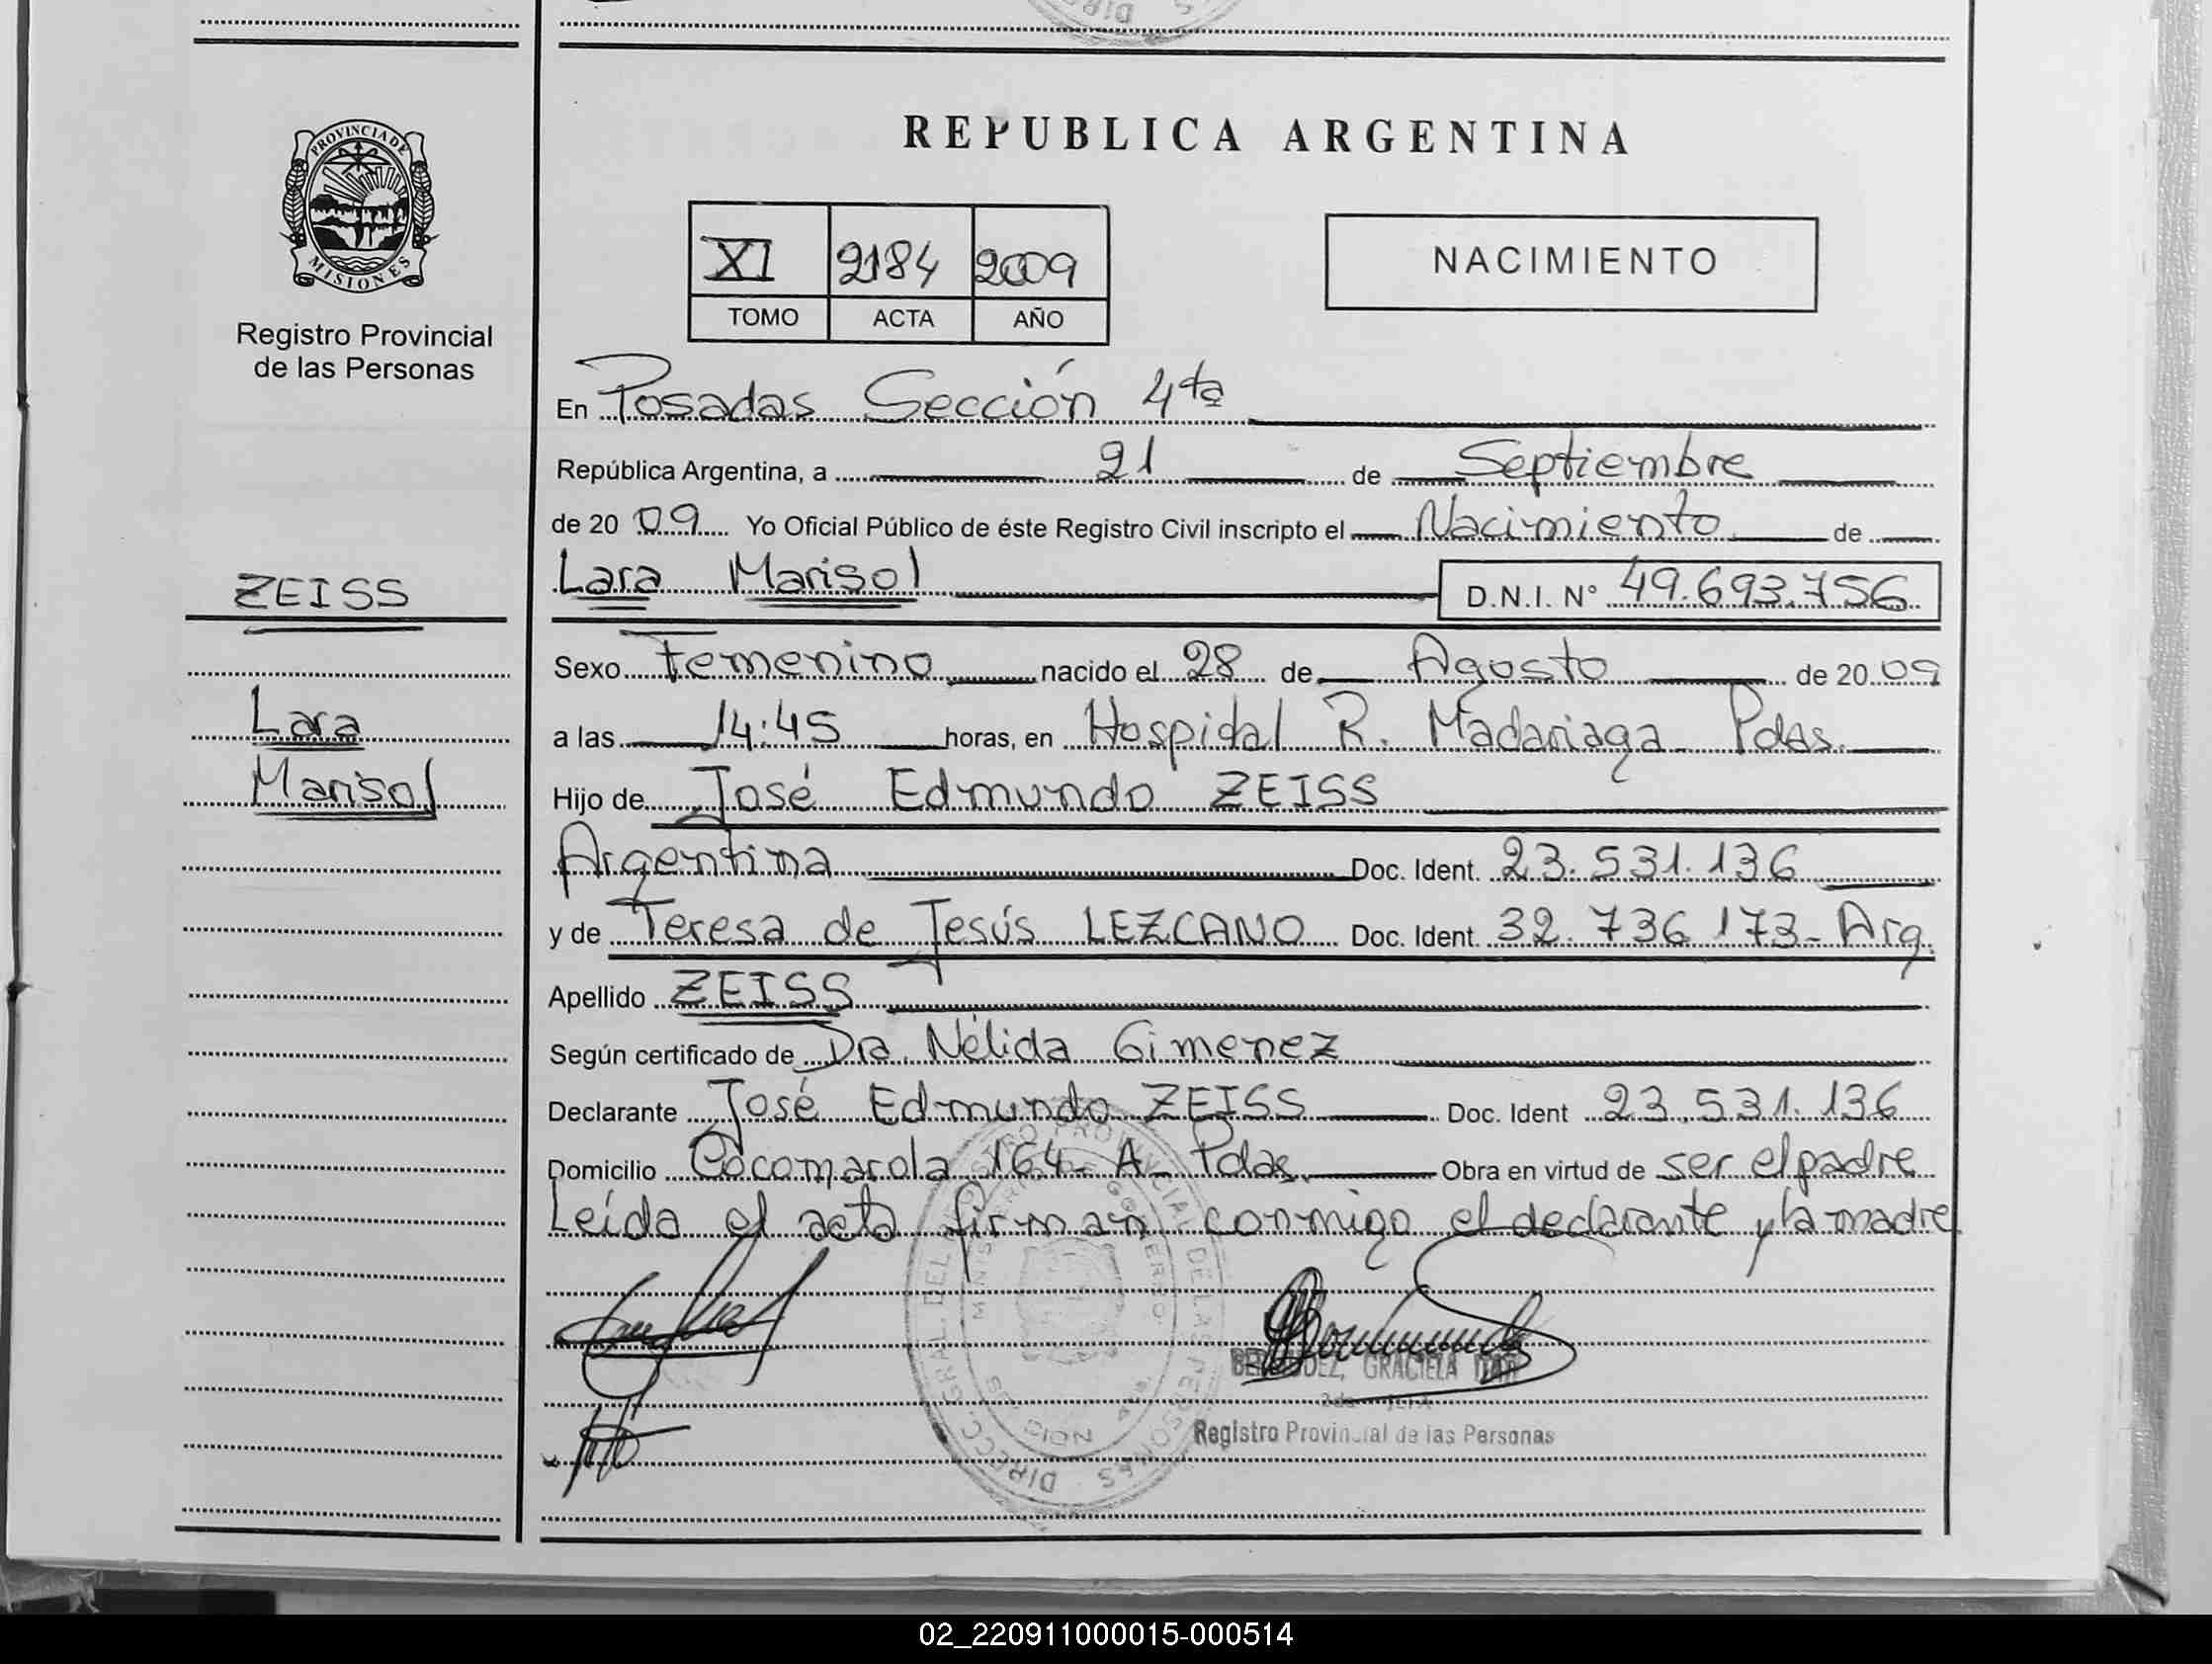 REPUBLICA ARGENTINA
PROVINCIA DE
MISIONES
Registro Provincial
de las Personas
XI 2184 2009
TOMO ACTA AÑO
NACIMIENTO
En Posadas Sección 4ta
República Argentina, a 21 de Septiembre
de 20 09 Yo Oficial Público de éste Registro Civil inscripto el Nacimiento de
ZEISS
Lara Marisol D.N.I. N° 49.693.756
Sexo Femenino nacido el 28 de Agosto de 20 09
Lara
a las 14:45 horas, en Hospidal R. Madariaga Pdas.
Marisol
Hijo de José Edmundo ZEISS
Argentina Doc. Ident. 23.531.136
y de Teresa de Jesús LEZCANO Doc. Ident. 32.736 173- Arg.
Apellido ZEISS
Según certificado de Dra. Nélida Gimenez
Declarante José Edmundo ZEISS Doc. Ident 23.531.136
Domicilio Cocomarola 164- A- Pdas. Obra en virtud de ser el padre
Leída el acta firman conmigo el declarante y la madre
GRACIELA
Registro Provincial de las Personas
02_220911000015-000514